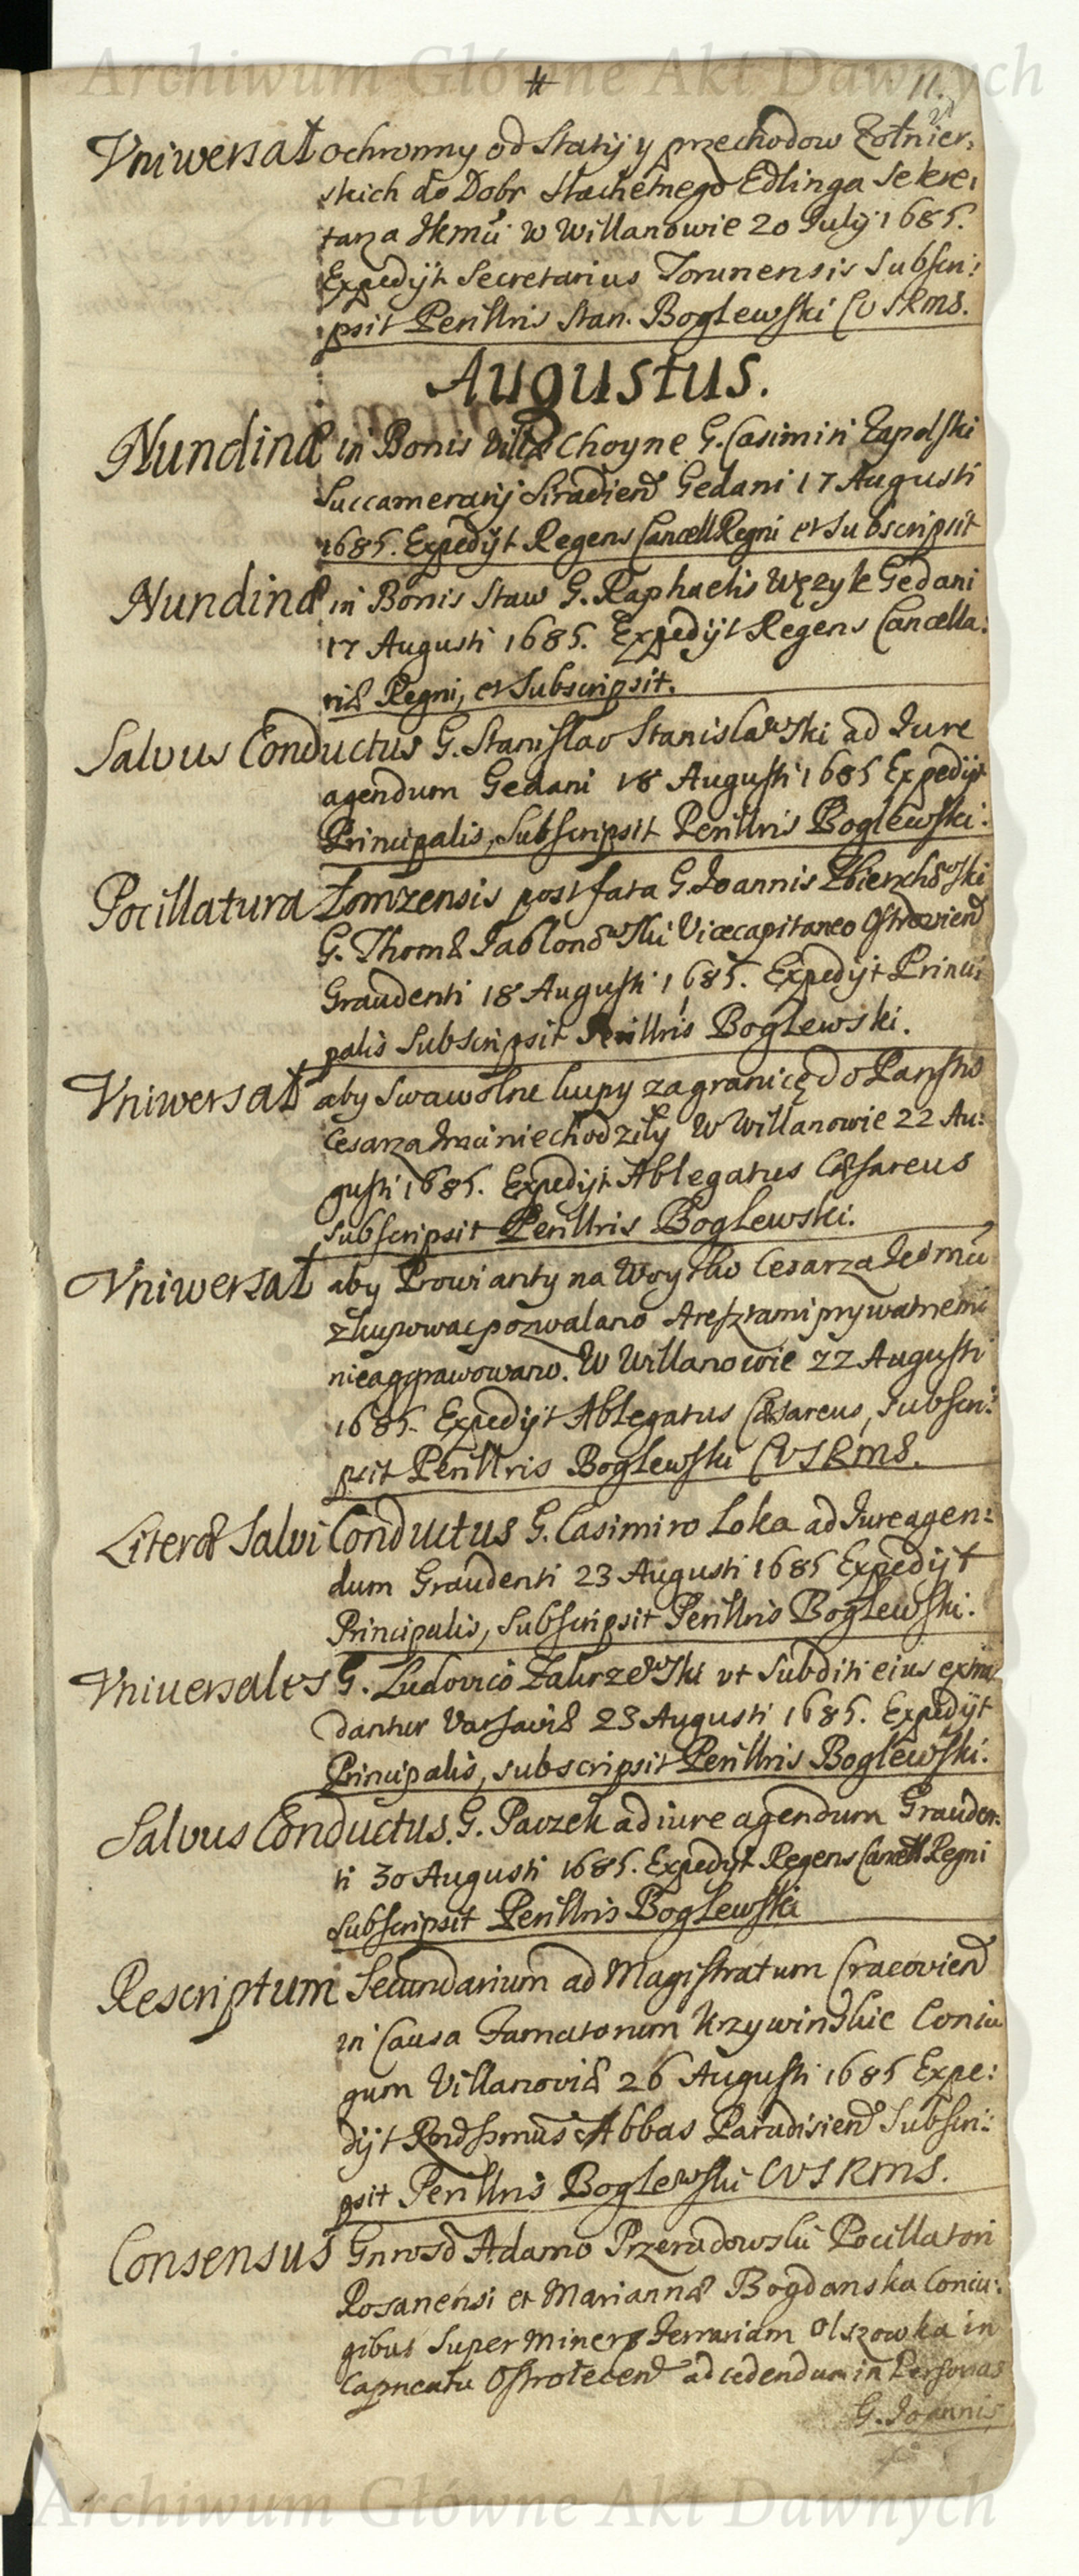 Archiwum Główne Akt Dawnych
# 11.
Vniwersał ochronny od Statij y przechodow Żołnier:
skich do Dobr Slachetnego Edlinga Sekre:
tarza JKmći w Willanowie 20 Julij 1685.
Expedijt Secretarius Torunensis Subscri:
psit Perillris Stan. Boglewski CVSRMS.
Augustus.
Nundinæ in Bonis Villæ Choyne G. Casimiri Zapolski
Succamerarij Siradien̄ Gedani 17 Augusti
1685. Expedijt Regens Cancell Regni et Subscripsit
Nundinæ in Bonis Staw G. Raphaelis Wężyk Gedani
17 Augusti 1685. Expedijt Regens Cancella:
riæ Regni, et Subscripsit.
Salvus Conductus G. Stanislao Stanislawski ad Jure
agendum Gedani 18 Augusti 1685 Expedijt
Principalis, Subscripsit Perillris Boglewski.
Pocillatura Łomzensis post fata G. Joannis Zbierzchowski
G. Thomæ Jablonowski Vicecapitaneo Ostrovien̄
Graudenti 18 Augusti 1685. Expedijt Princi
palis Subscripsit Perillris Boglewski.
Vniwersał aby Swawolne kupy zagranicę do Panstw
Cesarza Jmci niechodziły W Willanowie 22 Au:
gusti 1685. Expedijt Ablegatus Cæsareus
Subscripsit Perillris Boglewski.
Vniwersał aby Prowianty na Woysko Cesarza Jeomci
zkupowac pozwalano Aresztami prywatnemi
nieaggrawowano. W Willanowie 22 Augusti
1685. Expedijt Ablegatus Cæsareus, Subscri:
psit Perillris Boglewski CVSRMS.
Literæ Salvi Conductus G. Casimiro Loka ad Jure agen:
dum Graudenti 23 Augusti 1685 Expedijt
Principalis, Subscripsit Perillris Boglewski.
Vniuersales G. Ludovico Zakrzewski vt Subditi eius extra
dantur Varsaviæ 23 Augusti 1685. Expedijt
Principalis, subscripsit Perillris Boglewski.
Salvus Conductus. G. Paczek ad iure agendum Grauden:
ti 30 Augusti 1685. Expedijt Regens Cancell Regni
Subscripsit Perillris Boglewski
Rescriptum Secundarium ad Magistratum Cracovien̄
in Causa Famatorum Krzywinskie Coniu
gum Villanoviæ 26 Augusti 1685 Expe:
dijt Rndssmus Abbas Paradisien̄ Subscri:
psit Perillris Boglewski CVSRMS.
Consensus Gnroso Adamo Przeradowski Pocillatori
Rosanensi et Mariannæ Bogdanska Coniu:
gibus Super Mineram Ferrariam Olszowka in
Capneatu Ostrolecen̄ ad cedendum in Personas
G. Joannis
Archiwum Główne Akt Dawnych